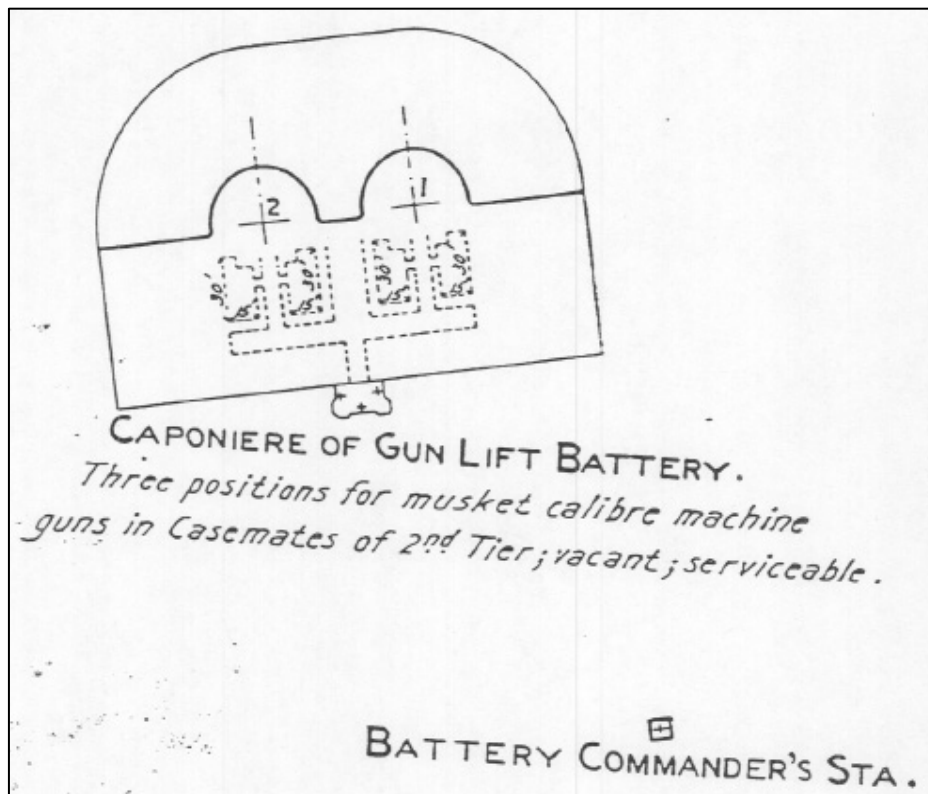 1
2
30' 30' 30' 30'
CAPONIERE OF GUN LIFT BATTERY.
Three positions for musket calibre machine
guns in Casemates of 2nd Tier; vacant; serviceable.
BATTERY COMMANDER'S STA.